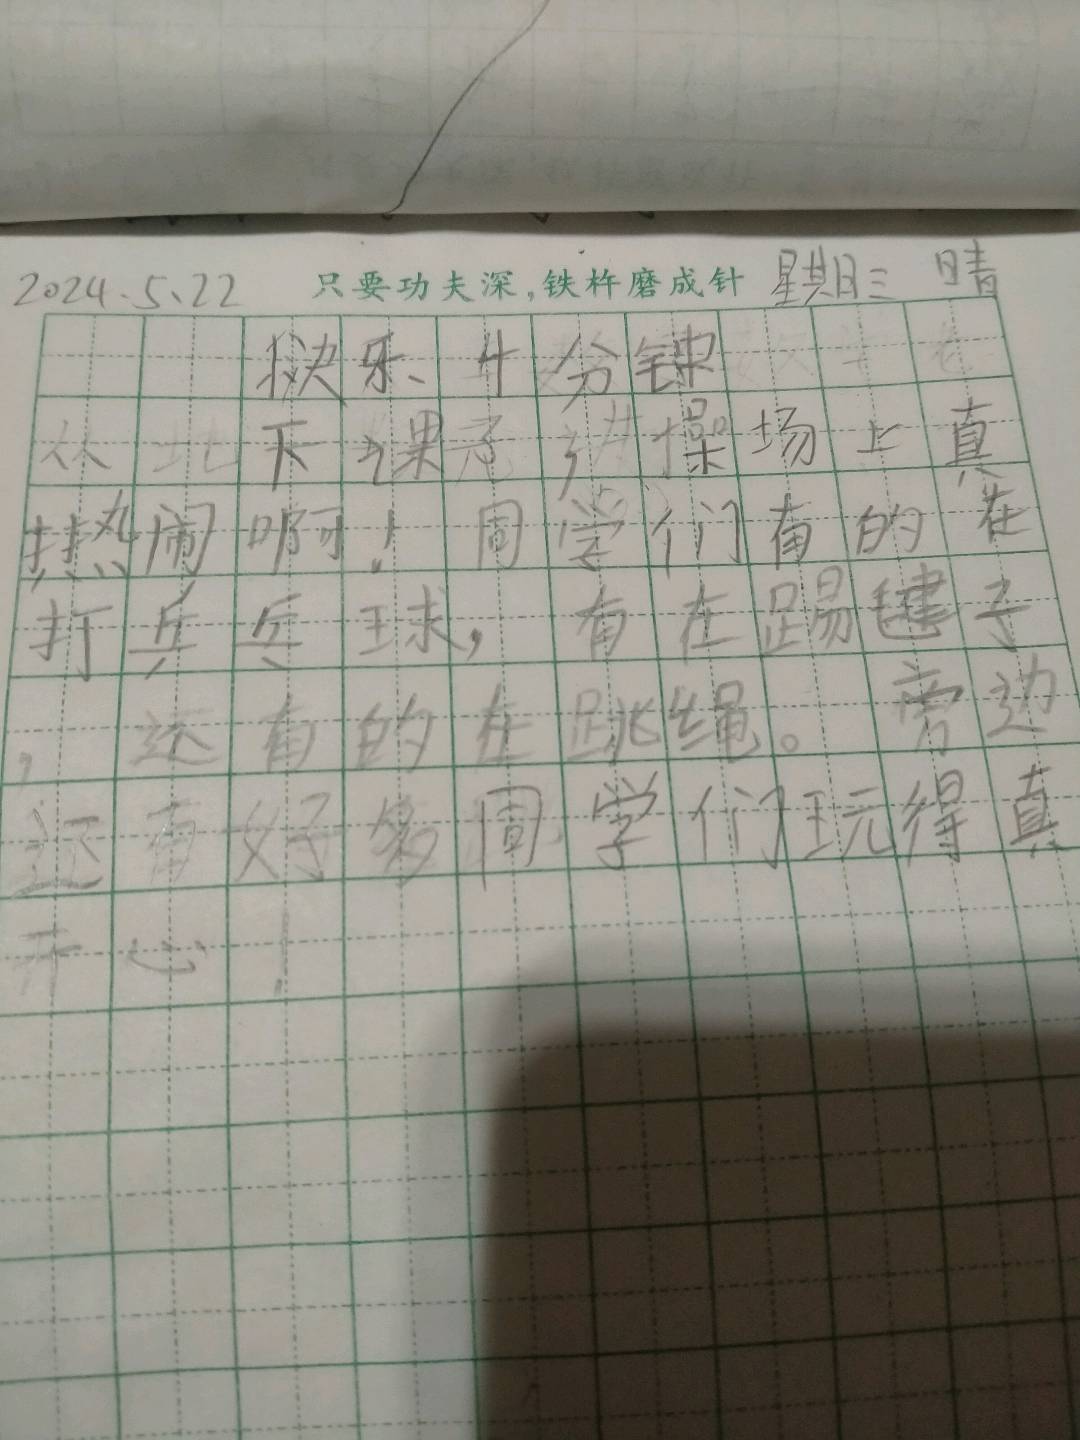 2024.5.22 只要功夫深,铁杵磨成针 星期三 晴
快乐十分钟
下课了,操场上真
热闹啊!同学们有的在
打乒乓球,有在踢毽子
,还有的在跳绳。旁边
还有好多同学们玩得真
开心!